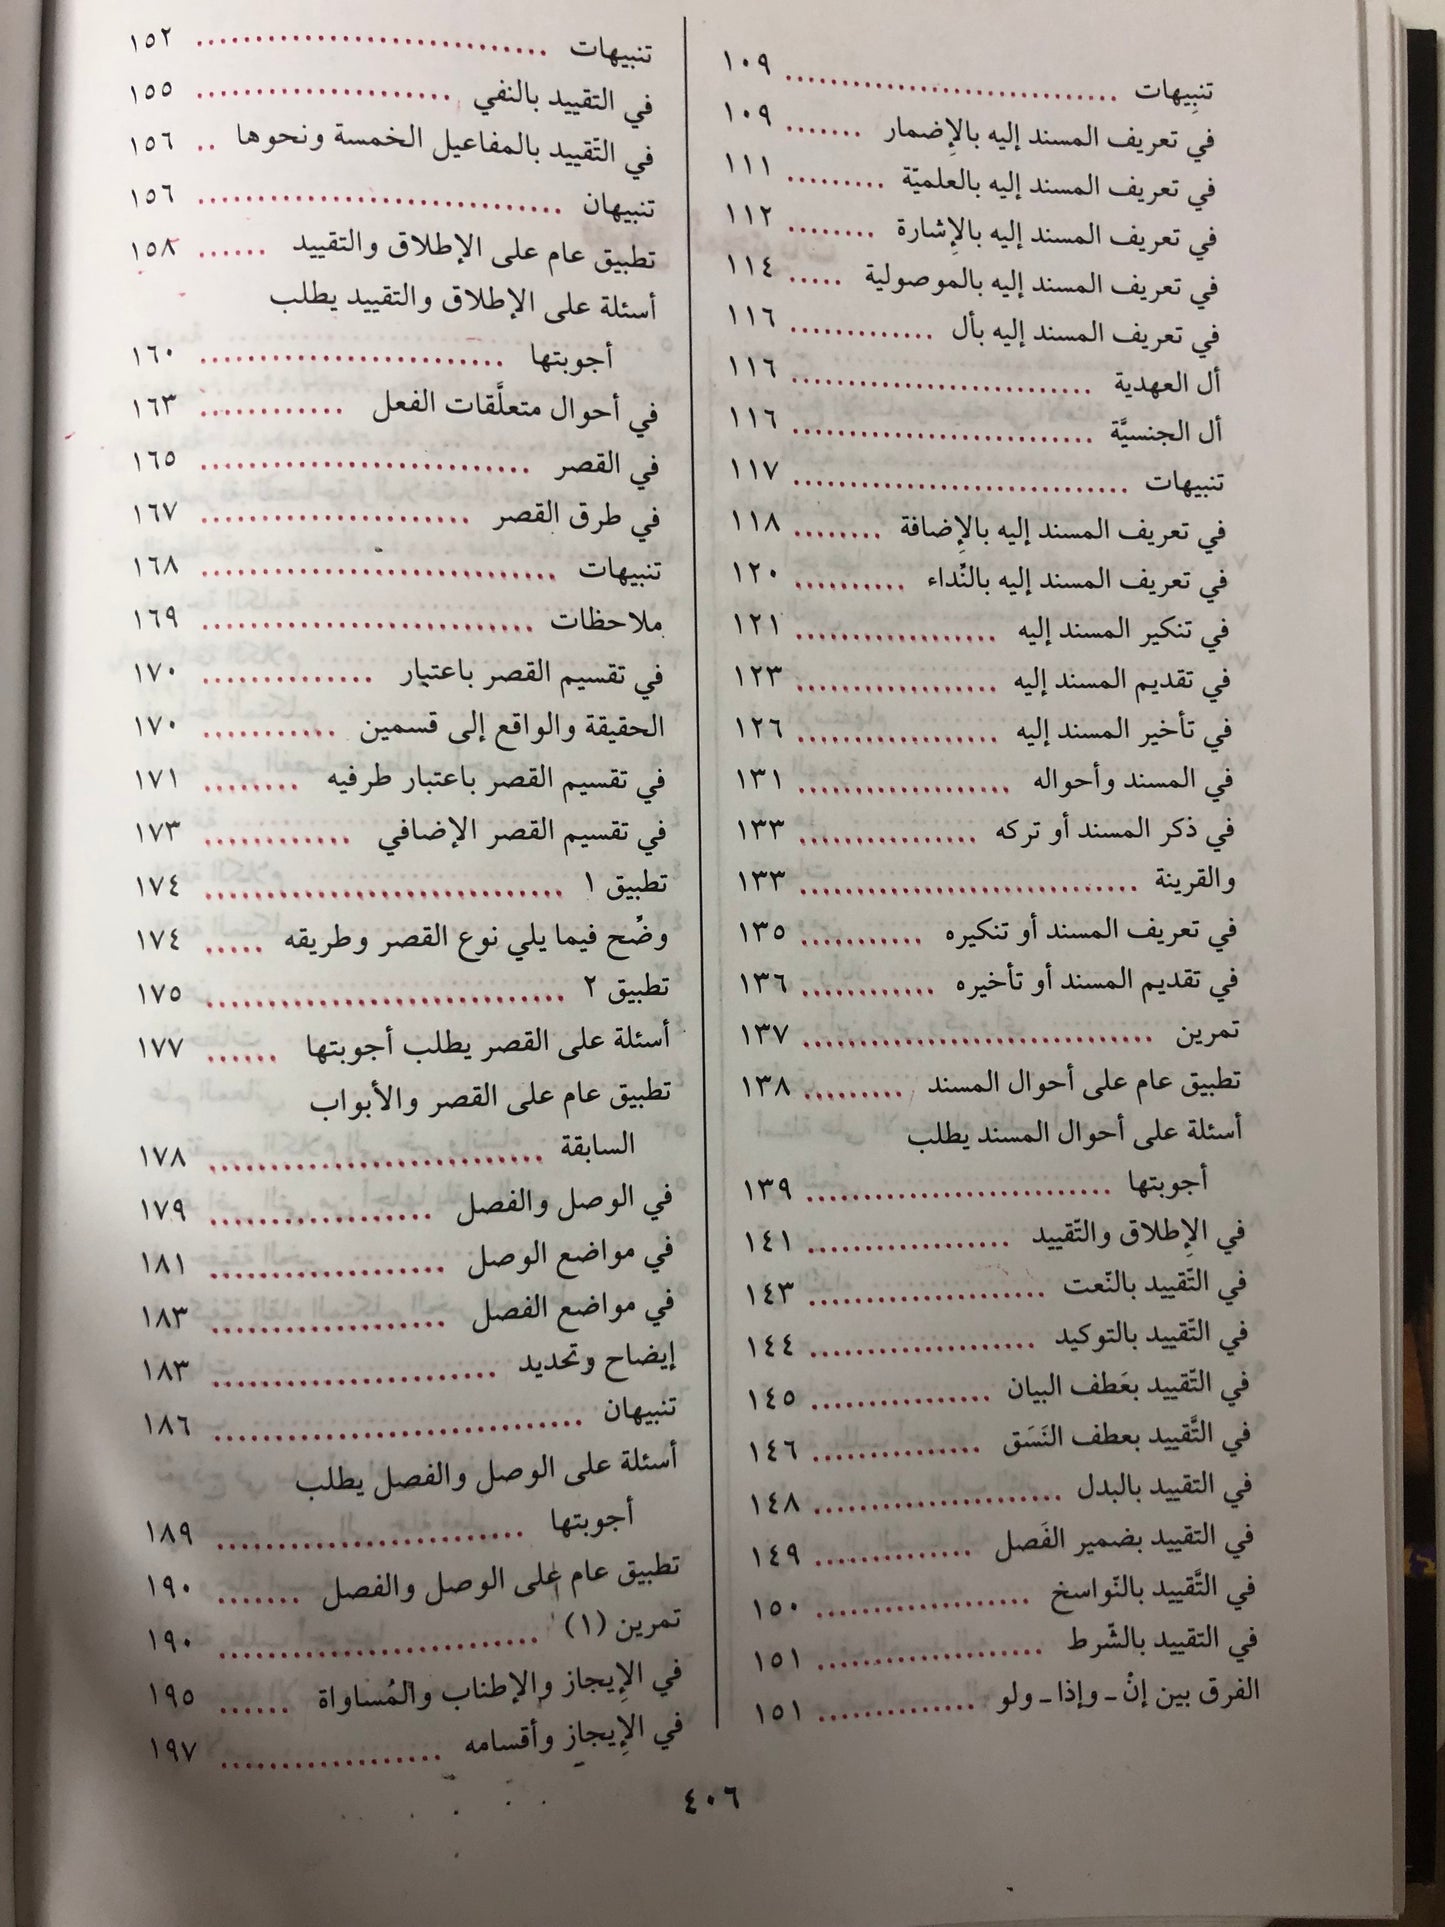 تنبيهات ............................ ١٠٩
في تعريف المسند إليه بالإِضمار ....... ١٠٩
في تعريف المسند إليه بالعلميّة ......... ١١١
في تعريف المسند إليه بالإِشارة ........ ١١٢
في تعريف المسند إليه بالموصولية ..... ١١٤
في تعريف المسند إليه بأل ............. ١١٦
أل العهدية ............................ ١١٦
أل الجنسيَّة ............................ ١١٦
تنبيهات ............................... ١١٧
في تعريف المسند إليه بالإِضافة ........ ١١٨
في تعريف المسند إليه بالنِّداء .......... ١٢٠
في تنكير المسند إليه .................. ١٢١
في تقديم المسند إليه .................. ١٢٣
في تأخير المسند إليه .................. ١٢٦
في المسند وأحواله .................... ١٣١
في ذكر المسند أو تركه ................ ١٣٣
والقرينة ............................... ١٣٣
في تعريف المسند أو تنكيره ........... ١٣٥
في تقديم المسند أو تأخيره ............ ١٣٦
تمرين ................................ ١٣٧
تطبيق عام على أحوال المسند ......... ١٣٨
أسئلة على أحوال المسند يطلب
أجوبتها ............................ ١٣٩
في الإِطلاق والتّقييد ................... ١٤١
في التّقييد بالنّعت ...................... ١٤٣
في التّقييد بالتوكيد ..................... ١٤٤
في التّقييد بعَطف البيان ................ ١٤٥
في التَّقييد بعطف النَسَق ............... ١٤٦
في التقييد بالبدل ....................... ١٤٨
في التقييد بضمير الفَصل .............. ١٤٩
في التَّقييد بالنّواسخ .................... ١٥٠
في التقييد بالشّرط ..................... ١٥١
الفرق بين إنْ ـ وإذا ـ ولو .............. ١٥١
تنبيهات .............................. ١٥٢
في التقييد بالنفي ...................... ١٥٥
في التّقييد بالمفاعيل الخمسة ونحوها .. ١٥٦
تنبيهان ............................... ١٥٦
تطبيق عام على الإطلاق والتقييد ...... ١٥٨
أسئلة على الإطلاق والتقييد يطلب
أجوبتها ............................ ١٦٠
في أحوال متعلَّقات الفعل ............ ١٦٣
في القصر ............................. ١٦٥
في طرق القصر ....................... ١٦٧
تنبيهات ............................... ١٦٨
ملاحظات ............................. ١٦٩
في تقسيم القصر باعتبار .............. ١٧٠
الحقيقة والواقع إلى قسمين ........... ١٧٠
في تقسيم القصر باعتبار طرفيه ........ ١٧١
في تقسيم القصر الإضافي ............ ١٧٣
تطبيق ١ .............................. ١٧٤
وضّح فيما يلي نوع القصر وطريقه ..... ١٧٤
تطبيق ٢ .............................. ١٧٥
أسئلة على القصر يطلب أجوبتها ...... ١٧٧
تطبيق عام على القصر والأبواب
السابقة ............................ ١٧٨
في الوصل والفصل ................... ١٧٩
في مواضع الوصل .................... ١٨١
في مواضع الفصل .................... ١٨٣
إيضاح وتحديد ........................ ١٨٣
تنبيهان ............................... ١٨٦
أسئلة على الوصل والفصل يطلب
أجوبتها ............................ ١٨٩
تطبيق عام على الوصل والفصل ....... ١٩٠
تمرين (١) ............................ ١٩٠
في الإِيجاز والإطناب والمُساواة ...... ١٩٥
في الإِيجاز وأقسامه ................... ١٩٧
٤٠٦